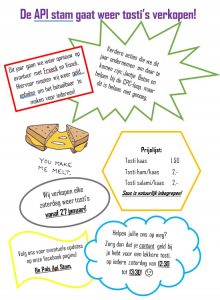 De API stam gaat weer tosti's verkopen!
Dit jaar gaan we weer opnieuw op
avontuur met
Hiervoor moeten we weer geld
ophalen om het betaalbaar te
maken voor iedereen!
Verdere acties die we dit
jaar ondernemen om daar te
komen zijn: Jantje Beton en
helpen bij de
dit is helaas niet genoeg.
YOU MAKE
ME MELT.
Prijslijst:
Tosti kaas 1,50
Tosti ham/kaas 2,-
Tosti salami/kaas 2,-
Saus is natuurlijk inbegrepen!
Wij verkopen elke
zaterdag weer tosti's
vanaf 27 januari!
Volg ons voor eventuele updates
op onze facebook pagina!
De Pals Api Stam.
Helpen jullie ons op weg?
Zorg dan dat je contant geld bij
je hebt voor een lekkere tosti,
op iedere zaterdag van 12:30
tot 13:30!